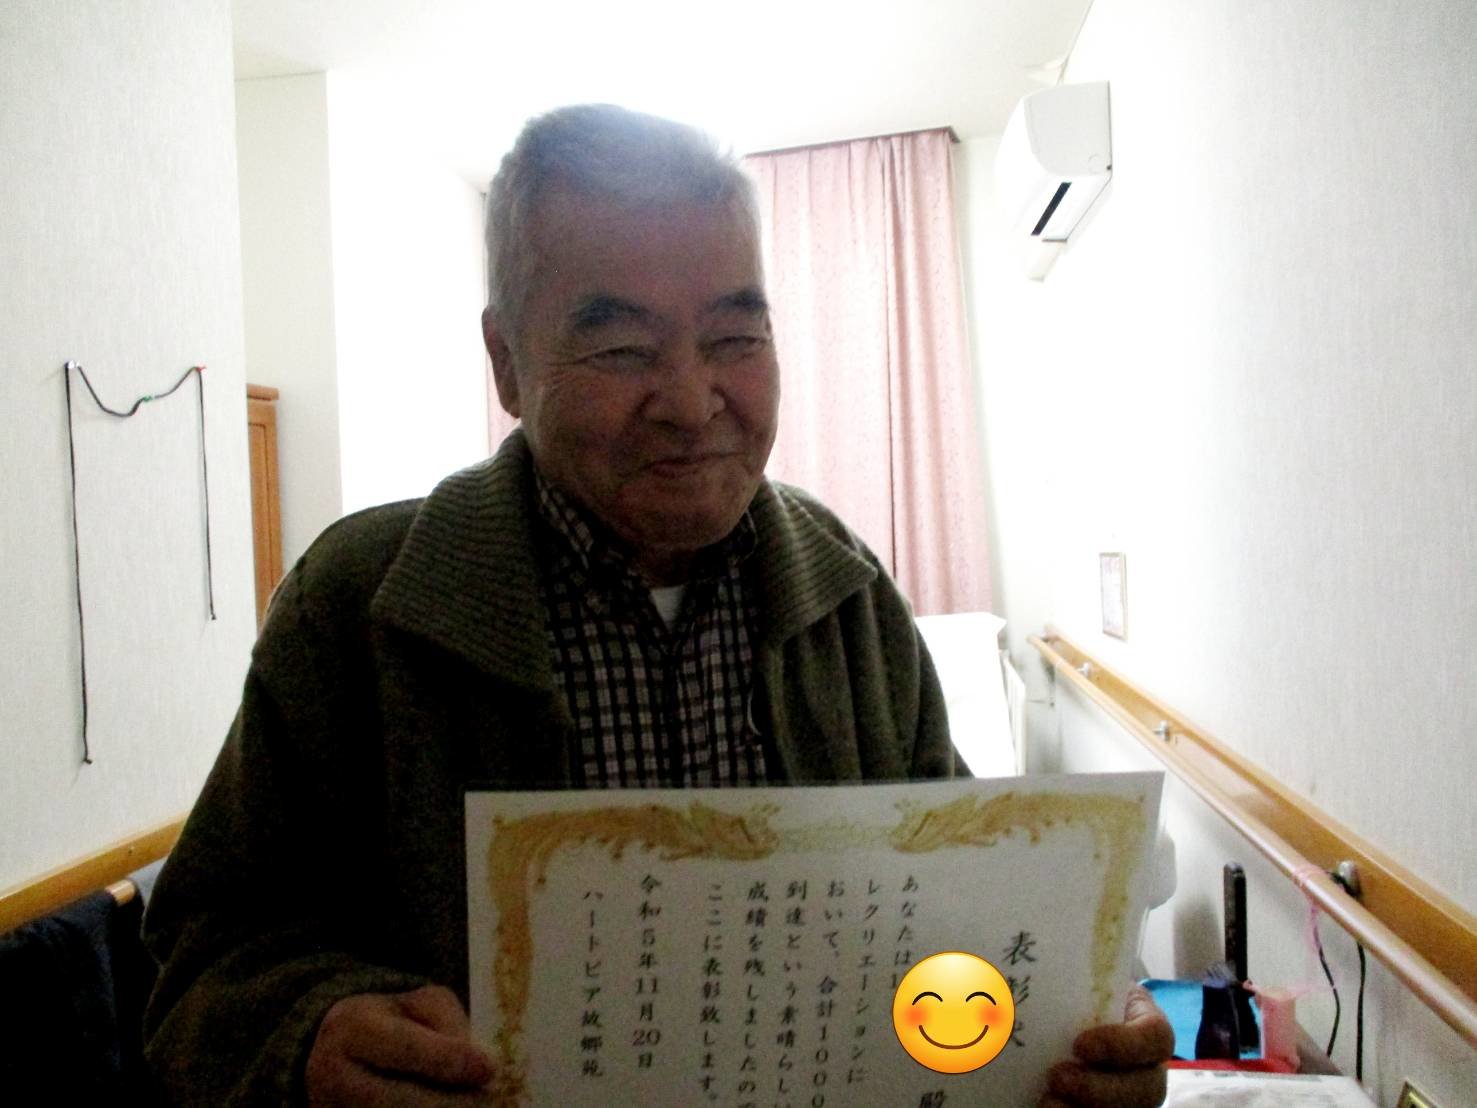 表彰状
殿
あなたは1
レクリエーションに
おいて、合計1000
到達という素晴らしい
成績を残しましたので
ここに表彰致します。
令和5年11月20日
ハートピア故郷苑